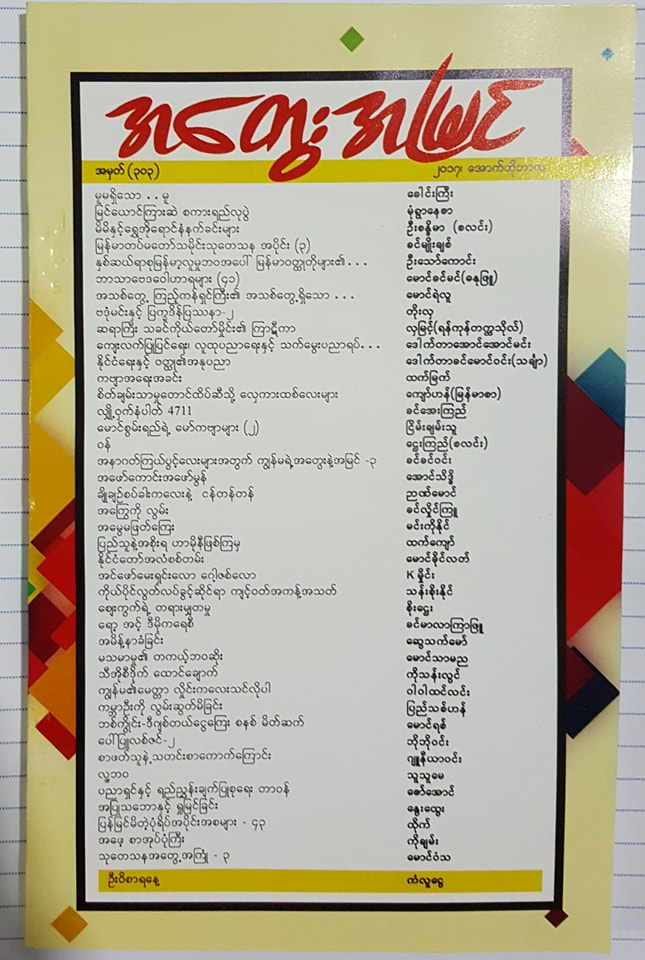 အတွေးအမြင်
အမှတ် (၃၀၃) ၂၀၁၇၊ အောက်တိုဘာလ
မူမရှိသော . . မူ ခေါင်းကြီး
မြင်ယောင်ကြားဆဲ စကားရည်လုပွဲ မုံရွာနေစာ
မိမိနှင့်ရွှေအိုရောင်နံနက်ခင်းများ ဦးစန္ဒိမာ (စလင်း)
မြန်မာတပ်မတော်သမိုင်းသုတေသန အပိုင်း (၃) ခင်မျိုးချစ်
နှစ်ဆယ်ရာစုမြန်မာ့လူမှုဘဝအပေါ် မြန်မာဝတ္ထုတိုများ၏ . . . ဦးသော်ကောင်း
ဘာသာဗေဒဝေါဟာရများ (၄၁) မောင်ခင်မင်(ဓနုဖြူ)
အသစ်တွေ့ ကြည့်ကန်ရှင်ကြီး၏ အသစ်တွေ့ရှိသော . . . မောင်ရဲလူ
ဗဒုံမင်းနှင့် ပြက္ခဒိန်ပြဿနာ-၂ တိုးလှ
ဆရာကြီး သခင်ကိုယ်တော်မှိုင်း၏ ကြာဋီကာ လှမြင့်(ရန်ကုန်တက္ကသိုလ်)
ကျေးလက်ပြုပြင်ရေး၊ လူထုပညာရေးနှင့် သက်မွေးပညာရပ်. . . ဒေါက်တာအောင်အောင်မင်း
နိုင်ငံရေးနှင့် ဝတ္ထု၏အနုပညာ ဒေါက်တာခင်မောင်ဝင်း(သချာ်)
ကဗျာအရေးအခင်း ထက်မြက်
စိတ်ချမ်းသာမှုတောင်ထိပ်ဆီသို့ လှေကားထစ်လေးများ ကျော်ဟန်(မြန်မာစာ)
လျှို့ဝှက်နံပါတ် 4711 ခင်အေးကြည်
မောင်စွမ်းရည်ရဲ့ မော်ကဗျာများ (၂) ငြိမ်းချမ်းသူ
ဝန် ဌေးကြည်(စလင်း)
အနာဂတ်ကြယ်ပွင့်လေးများအတွက် ကျွန်မရဲ့အတွေးနဲ့အမြင် -၃ ခင်ခင်ဝင်း
အဖော်ကောင်းအဖော်မွန် အောင်သိဒ္ဓိ
ချိုချဉ်စပ်ခါးကလေးနဲ့ ငန်တန်တန် ညဏ်မောင်
အကြွေကို လွမ်း ခင်လှိုင်ကြူ
အမွေမဖြတ်ကြေး မင်းကိုနိုင်
ပြည်သူနဲ့အစိုးရ ဟာမိုနီဖြစ်ကြမှ ထက်ကျော်
နိုင်ငံတော်အလံစစ်တမ်း မောင်ခိုင်လတ်
အင်ဖော်မေးရှင်းလော ဂေါ့ဇစ်လော K မှိုင်း
ကိုယ်ပိုင်လွတ်လပ်ခွင့်ဆိုင်ရာ ကျင့်ဝတ်အကန့်အသတ် သန်းစိုးနိုင်
ဈေးကွက်ရဲ့ တရားမျှတမှု စိုးဌေး
ရော့ အင့် ဒီမိုကရေစီ ခင်မာလာကြာဖြူ
အမိန့်နာခံခြင်း ဆွေသက်မော်
မသမာမှု၏ တကယ့်ဘဝဆိုး မောင်သာမည
သီအိုစီဒိုက် ထောင်ချောက် ကိုသန်းလွင်
ကျွန်မ၏မေတ္တာ လှိုင်းကလေးသင်လိုပါ ဝါဝါထင်လင်း
ကမ္ဘာဦးကို လွမ်းဆွတ်မိခြင်း ပြည်သစ်ဟန်
ဘစ်ကွိုင်း-ဒီဂျစ်တယ်ငွေကြေး စနစ် မိတ်ဆက် မောင်ရစ်
ပေါ်ပြူလစ်ဇင်-၂ ဘိုဘိုဝင်း
စာဖတ်သူနဲ့ သတင်းစာကောက်ကြောင်း ဂျူနီယာဝင်း
လူ့ဘဝ သူသူမေ
ပညာရှင်နှင့် ရည်ညွှန်းချက်ပြုစုရေး တာဝန် ဇော်အောင်
အပြုသဘောနှင့် ရှုမြင်ခြင်း နွေးထွေး
ပြန်မြင်မိတဲ့ပုံရိပ်အပိုင်းအစများ - ၄၃ ထိုက်
အဖေ့ စာအုပ်ပုံကြီး ကိုချမ်း
သုတေသနအတွေ့အကြုံ - ၃ မောင်ဝံသ
ဦးဝိစာရနေ့ ကံလူငွေ